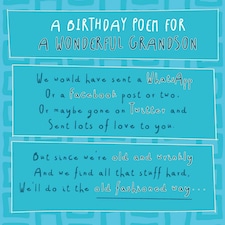 A BIRTHDAY POEM FOR
A WONDERFUL GRANDSON
We would have sent a WhatsApp
Or a facebook post or two.
Or maybe gone on Twitter and
Sent lots of love to you.
But since we're old and wrinkly
And we find all that stuff hard,
We'll do it the old fashioned way...